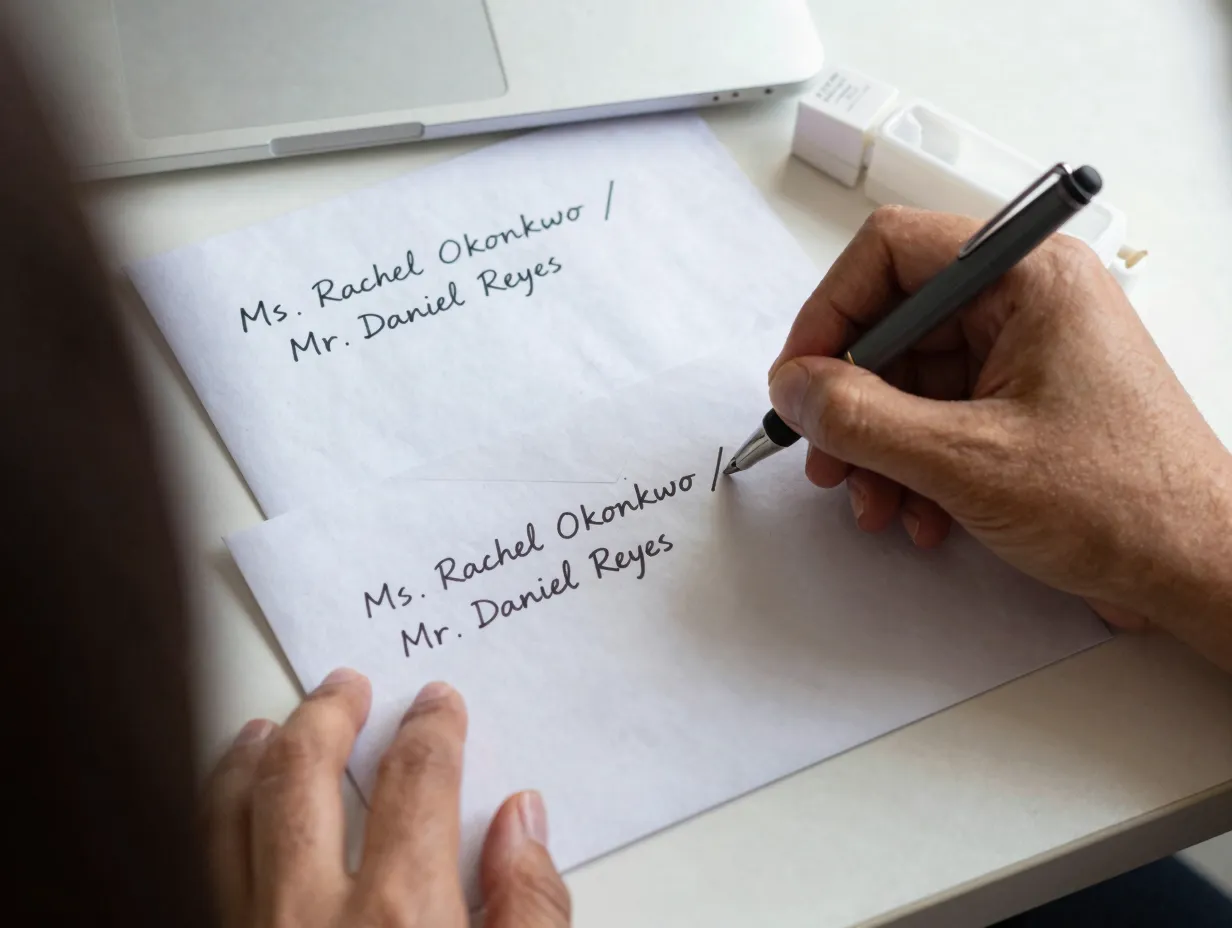 Ms. Rachel Okonkwo /
Mr. Daniel Reyes
Ms. Rachel Okonkwo /
Mr. Daniel Reyes